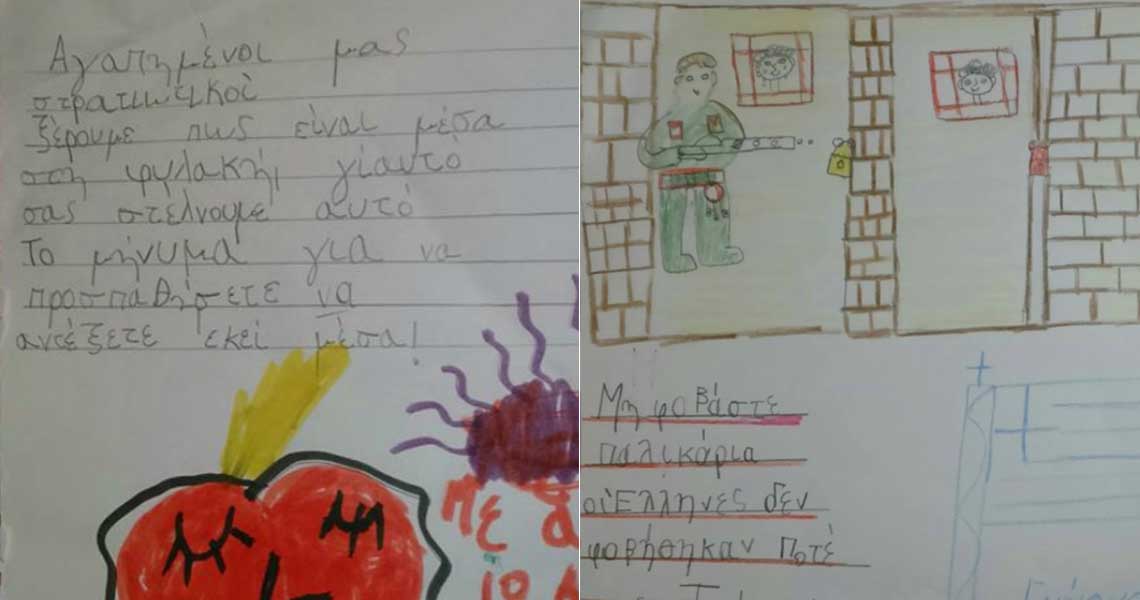 Αγαπημένοι μας
στρατιωτικοί
ξέρουμε πως είναι μέσα
στη φυλακή, γι'αυτό
σας στέλνουμε αυτό
Το μήνυμα για να
προσπαθήσετε να
αντέξετε εκεί μέσα!
Με
Μη φοβάστε
παλικάρια
οι Έλληνες δεν
φοβήθηκαν Ποτέ